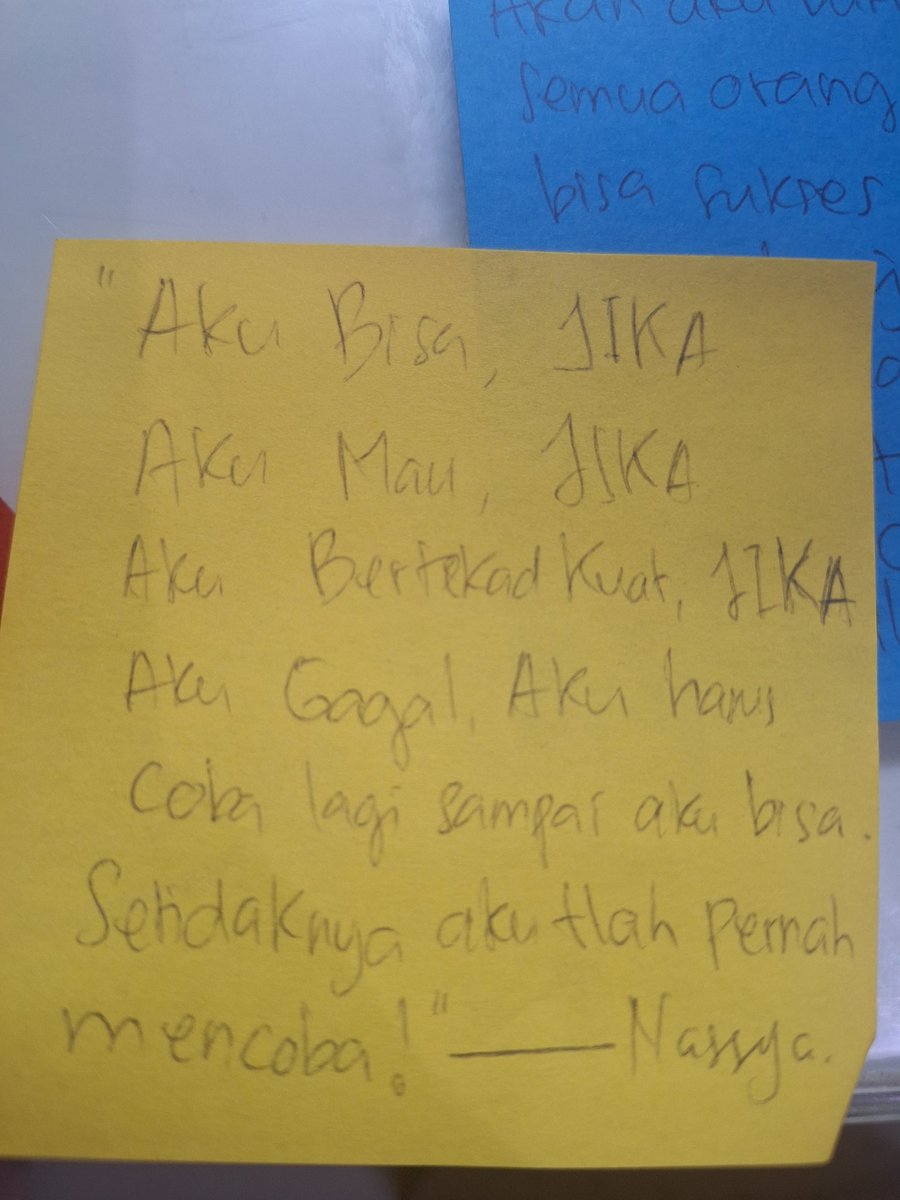 semua orang
bisa sukses
"Aku Bisa, JIKA
Aku Mau, JIKA
Aku Bertekad Kuat, JIKA
Aku Gagal, Aku harus
Coba lagi sampai aku bisa.
Setidaknya aku tlah Pernah
mencoba!" — Nassya.